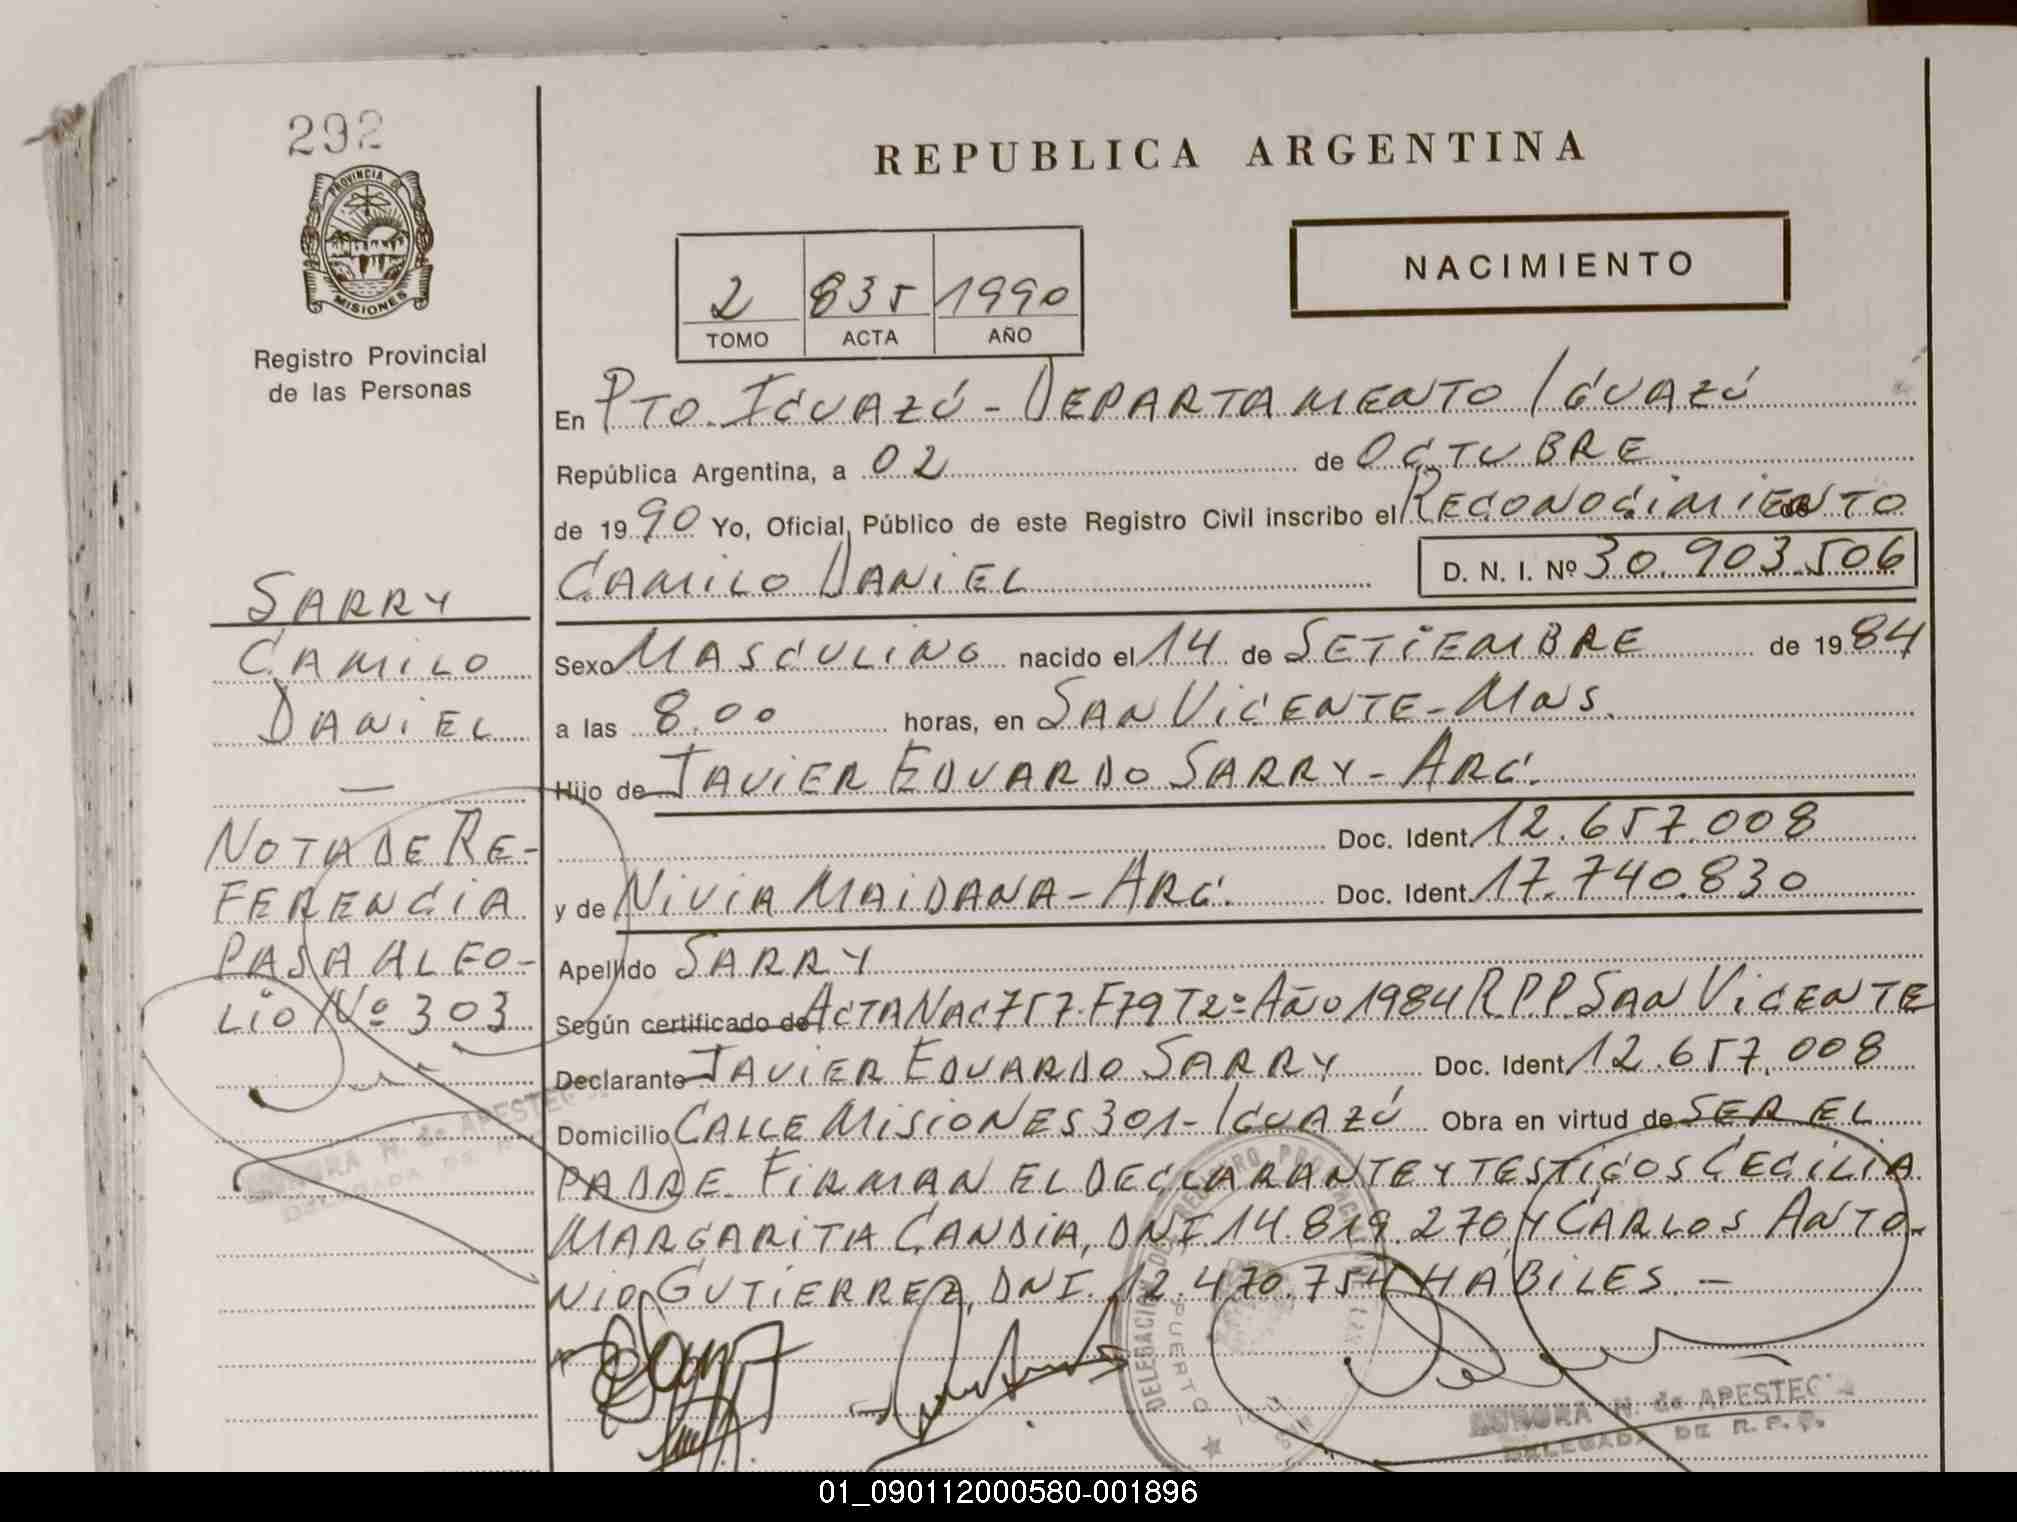 292
PROVINCIA DE
MISIONES
Registro Provincial
de las Personas
SARRY
CAMILO
DANIEL
—
NOTA DE RE-
FERENCIA
PASA AL FO-
LIO Nº 303
AURORA N. de APESTEG
DELEGADA DE R.
REPUBLICA ARGENTINA
2 835 1990
TOMO ACTA AÑO
NACIMIENTO
En PTO. IGUAZÚ - DEPARTAMENTO IGUAZÚ
República Argentina, a 02 de OCTUBRE
de 1990 Yo, Oficial Público de este Registro Civil inscribo el RECONOCIMIENTO de
CAMILO DANIEL D. N. I. Nº 30.903.506
Sexo MASCULINO nacido el 14 de SETIEMBRE de 1984
a las 8.00 horas, en SAN VICENTE - MNS.
Hijo de JAVIER EDUARDO SARRY - ARG.
Doc. Ident. 12.657.008
y de NIVIA MAIDANA - ARG. Doc. Ident. 17.740.830
Apellido SARRY
Según certificado de ACTA NAC 757. F79 T2º AÑO 1984 R.P.P. SAN VICENTE
Declarante JAVIER EDUARDO SARRY Doc. Ident. 12.657.008
Domicilio CALLE MISIONES 301 - IGUAZÚ Obra en virtud de SER EL
PADRE. FIRMAN EL DECLARANTE Y TESTIGOS CECILIA
MARGARITA CANDIA, DNI. 14.819.270 Y CARLOS ANTO-
NIO GUTIERREZ, DNI. 12.470.754 HÁBILES. —
DELEGACION DEL REGISTRO PROVINCIAL DE
PUERTO
AURORA N. de APESTEG
DELEGADA DE R. P. P.
01_090112000580-001896